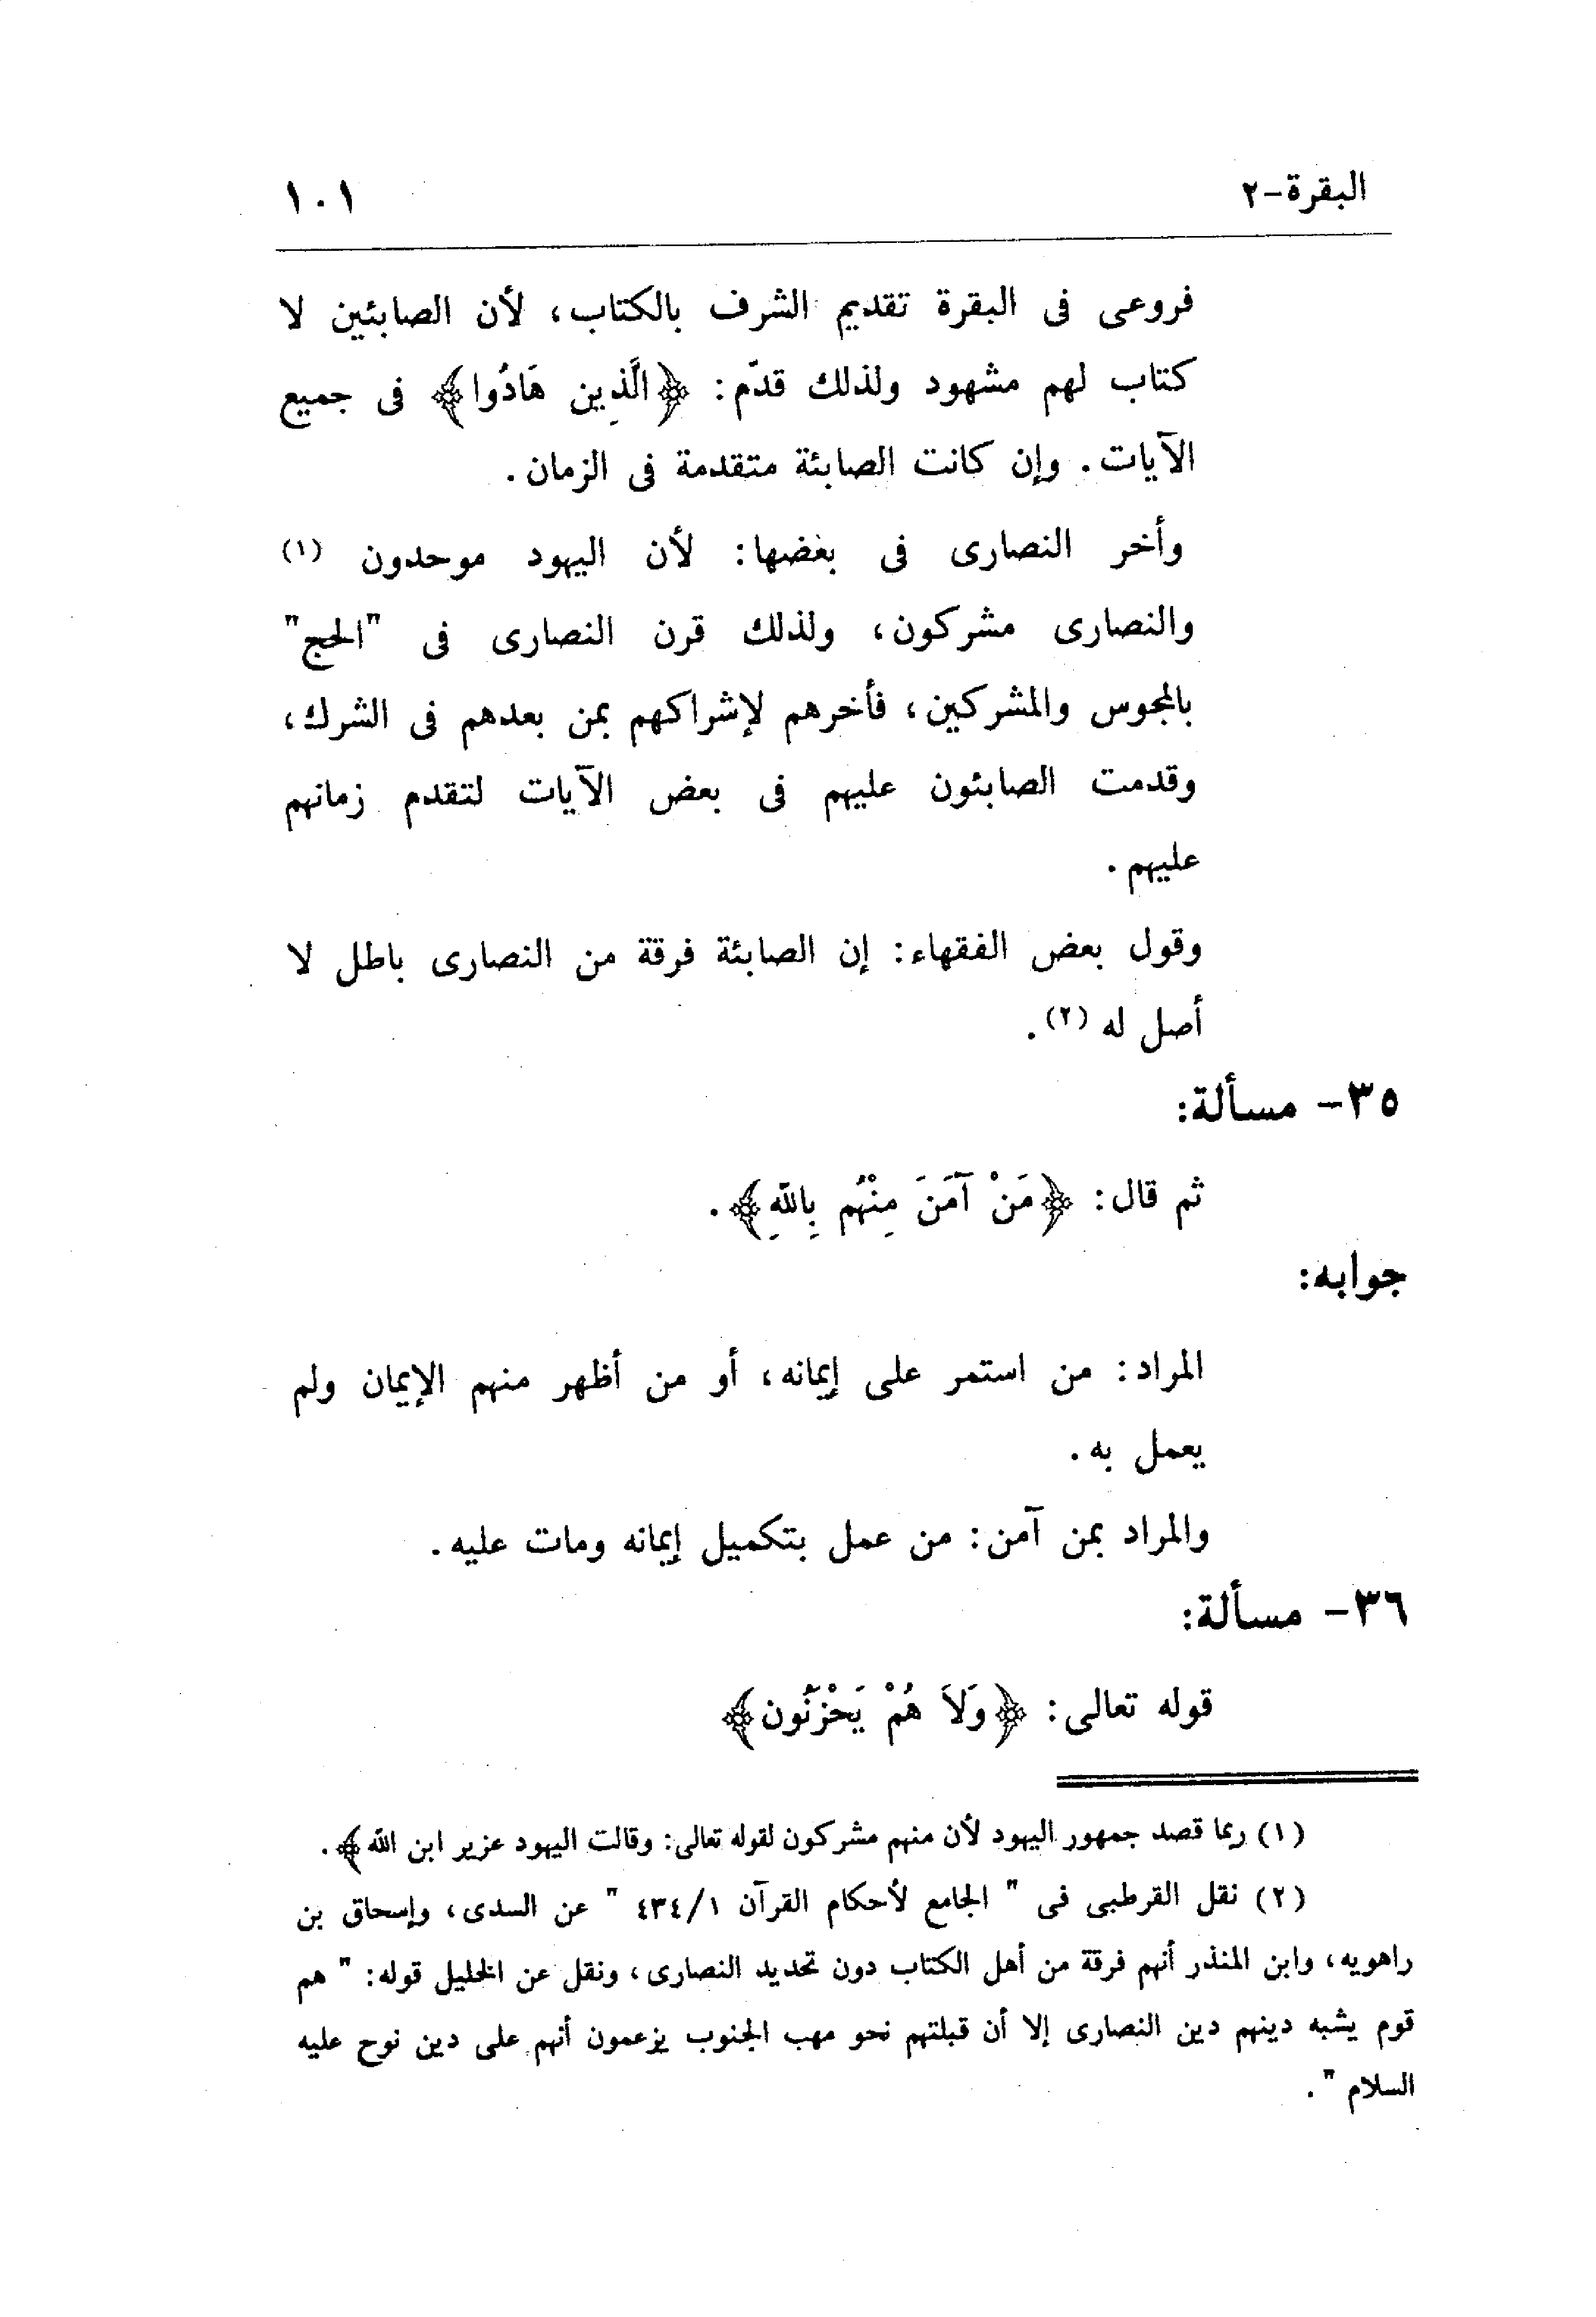 البقرة-٢
١٠١
فروعى فى البقرة تقديم الشرف بالكتاب، لأن الصابئين لا
كتاب لهم مشهود ولذلك قدّم: ﴿الَّذِين هَادُوا﴾ فى جميع
الآيات. وإن كانت الصابئة متقدمة فى الزمان.
وأخر النصارى فى بعضها: لأن اليهود موحدون (١)
والنصارى مشركون، ولذلك قرن النصارى فى "الحج"
بالمجوس والمشركين، فأخرهم لإشراكهم بمن بعدهم فى الشرك،
وقدمت الصابئون عليهم فى بعض الآيات لتقدم زمانهم
عليهم.
وقول بعض الفقهاء: إن الصابئة فرقة من النصارى باطل لا
أصل له (٢).
٣٥- مسألة:
ثم قال: ﴿مَنْ آمَنَ مِنْهُم بِاللَّهِ﴾.
جوابه:
المراد: من استمر على إيمانه، أو من أظهر منهم الإيمان ولم
يعمل به.
والمراد بمن آمن: من عمل بتكميل إيمانه ومات عليه.
٣٦- مسألة:
قوله تعالى: ﴿وَلاَ هُمْ يَحْزَنُون﴾
(١) ربما قصد جمهور اليهود لأن منهم مشركون لقوله تعالى: وقالت اليهود عزير ابن الله﴾.
(٢) نقل القرطبى فى " الجامع لأحكام القرآن ٤٣٤/١ " عن السدى، وإسحاق بن
راهويه، وابن المنذر أنهم فرقة من أهل الكتاب دون تحديد النصارى، ونقل عن الخليل قوله: " هم
قوم يشبه دينهم دين النصارى إلا أن قبلتهم نحو مهب الجنوب يزعمون أنهم على دين نوح عليه
السلام ".